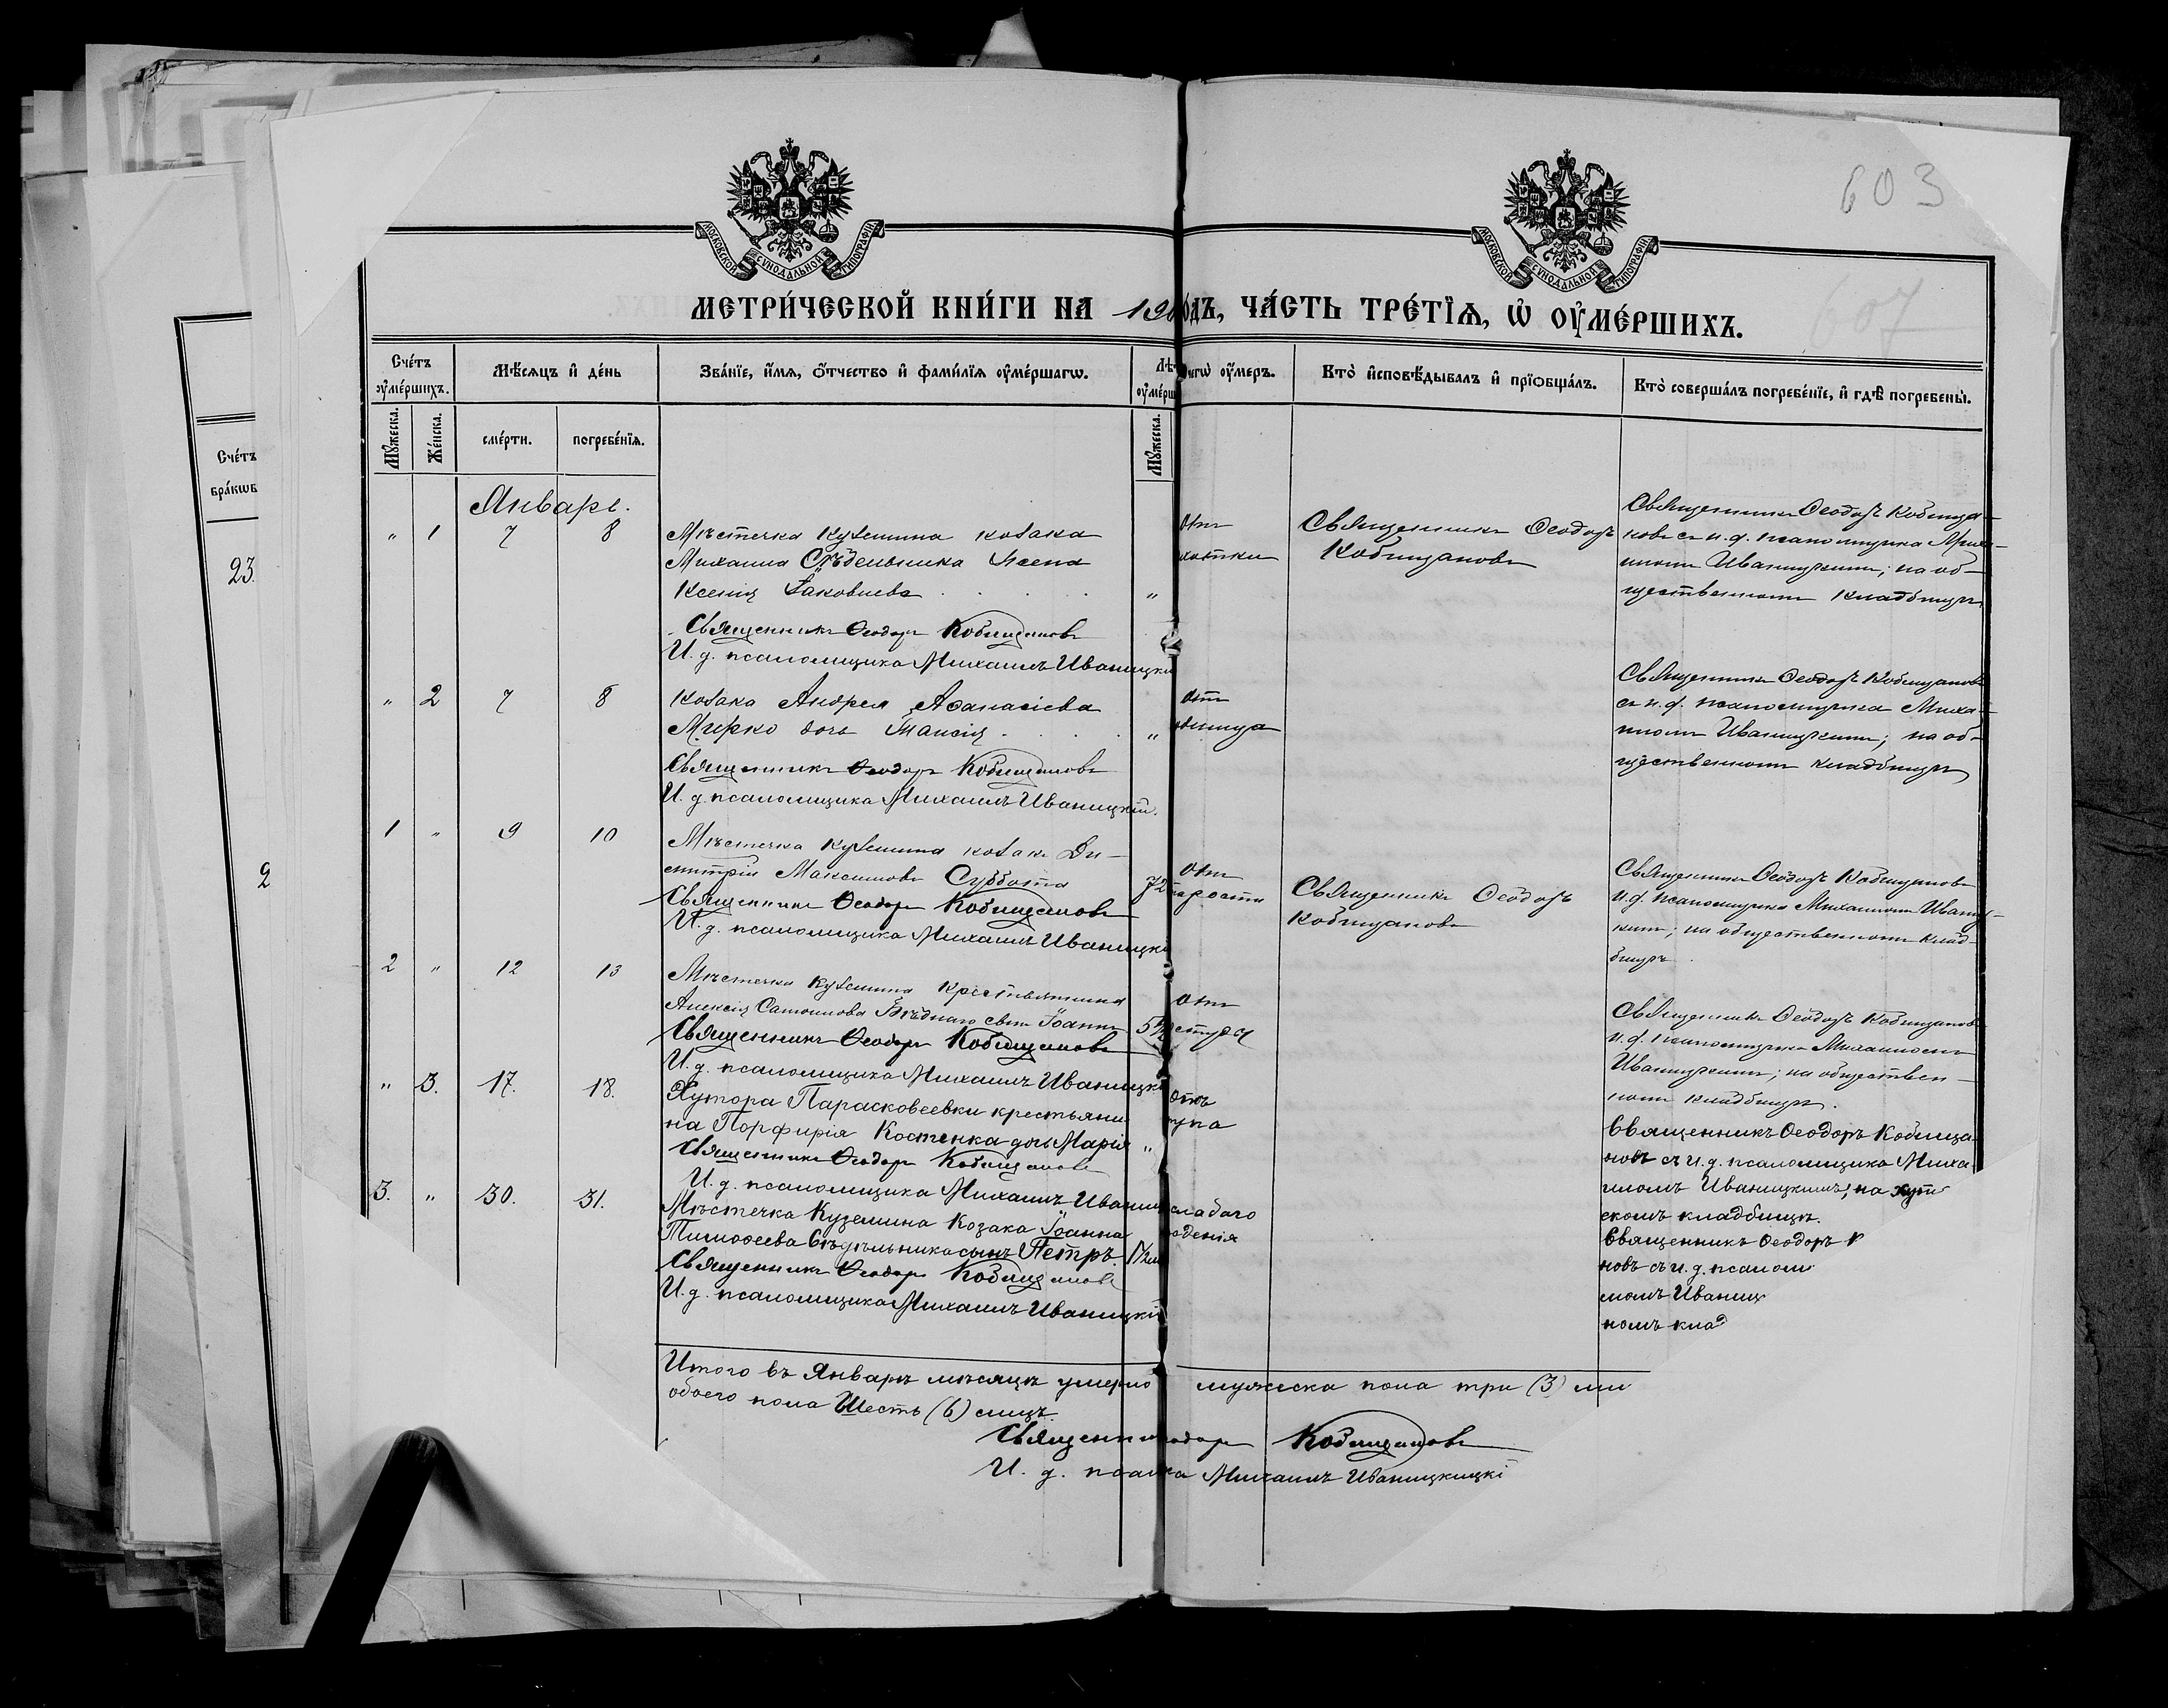 603
607
МОСКОВСКОЙ СѴНОДАЛЬНОЙ ТИПОГРАФІИ
МОСКОВСКОЙ СѴНОДАЛЬНОЙ ТИПОГРАФІИ
МЕТРИ́ЧЕСКОЙ КНИ́ГИ НА 190 ОДЪ, ЧА́СТЬ ТРЕ́ТІѦ, Ѡ ОУМЕ́РШИХЪ.
Сче́тъ оумéршихъ.
Мѣ́сяцъ и де́нь
Зва́нїе, и́мя, о́тчество и фами́лїя оуме́ршагѡ.
Лѣ
оуме́рш
чегѡ оу́меръ.
Кто̀ исповѣ́дывалъ и прїѡбща́лъ.
Кто̀ соверша́лъ погребе́нїе, и гдѣ̀ погребены̀.
Мꙋ́жеска.
Же́нска.
сме́рти.
погребе́нїя.
Мꙋ́жеска.
Сче́тъ
бра́кѡв
23.
2
Январь.
" 1 7 8
Мѣстечка Куземина козака
Михаила Сѣдельника жена
Ксенія Іаковлева "
Священникъ Ѳеодоръ Кобищановъ
И. д. псаломщика Михаилъ Иваницкі
отъ
Священникъ Ѳеодоръ
Кобищановъ
Священникъ Ѳеодоръ Кобища-
новъ съ и. д. псаломщика Миха-
иломъ Иваницкимъ; на об-
щественномъ кладбищѣ
" 2 7 8
Козака Андрея Аѳанасіева
Мирко дочь Таисія "
Священникъ Ѳеодоръ Кобищановъ
И. д. псаломщика Михаилъ Иваницкій.
отъ
Священникъ Ѳеодоръ Кобищановъ
съ и. д. псаломщика Миха-
иломъ Иваницкимъ; на об-
щественномъ кладбищѣ
1 " 9 10
Мѣстечка Куземина козакъ Ди-
митрій Максимовъ Суббота 72
Священникъ Ѳеодоръ Кобищановъ
И. д. псаломщика Михаилъ Иваницкі
отъ
тарости
Священникъ Ѳеодоръ
Кобищановъ
Священникъ Ѳеодоръ Кобищановъ
и. д. псаломщика Михаиломъ Иваниц-
кимъ; на общественномъ клад-
бищѣ.
2 " 12 13
Мѣстечка Куземина крестьянина
Алексія Бѣднаго сынъ Іоаннъ
Священникъ Ѳеодоръ Кобищановъ
И. д. псаломщика Михаилъ Иваницкі
отъ
Священникъ Ѳеодоръ Кобищановъ
и. д. псаломщика Михаиломъ
Иваницкимъ; на обществен-
номъ кладбищѣ.
" 3. 17. 18.
Хутора Парасковеевки крестьяни-
на Порфирія Костенка дочь Марія "
Священникъ Ѳеодоръ Кобищановъ
И. д. псаломщика Михаилъ Иваниц
отъ
рупа
Священникъ Ѳеодоръ Кобища-
новъ съ и. д. псаломщика Миха-
иломъ Иваницкимъ; на хут
скомъ кладбищѣ.
3. " 30. 31.
Мѣстечка Куземина Козака Іоанна
Тимоѳеева Сѣдѣльника сынъ Петръ.
Священникъ Ѳеодоръ Кобищановъ
И. д. псаломщика Михаилъ Иваницкій
слабаго
оденія
Священникъ Ѳеодоръ К
новъ съ и. д. псалом
иломъ Иваниц
номъ клад
Итого въ Январѣ мѣсяцѣ умерло мужеска пола три (3)
обоего пола Шесть (6) лицъ.
Священни одоръ Кобищановъ
И. д. псал ка Михаилъ Иваницкицкі